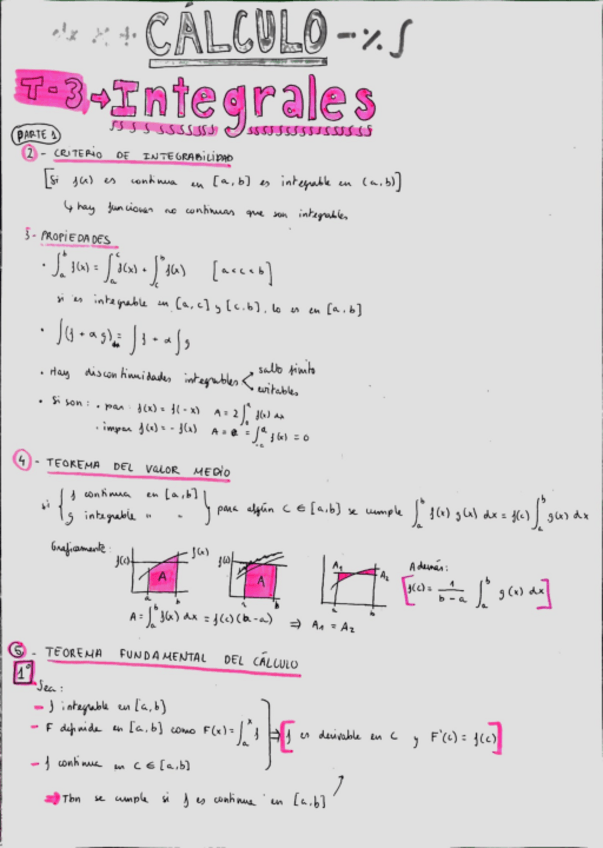 CÁLCULO - % ∫
T-3 → Integrales
PARTE 1
2 - CRITERIO DE INTEGRABILIDAD
[Si f(x) es continua en [a,b] es integrable en (a,b)]
↳ hay funciones no continuas que son integrables
3- PROPIEDADES
· ∫_a^b f(x) = ∫_a^c f(x) + ∫_c^b f(x) [a<c<b]
si es integrable en [a,c] y [c,b], lo es en [a,b]
· ∫(f + αg) = ∫f + α∫g
· Hay discontinuidades integrables < salto finito
evitables
· Si son: · par: f(x) = f(-x) A = 2∫_0^a f(x) dx
· impar f(x) = -f(x) A = ∫_{-a}^a f(x) = 0
4 - TEOREMA DEL VALOR MEDIO
si { f continua en [a,b]
g integrable " " } para algún c ∈ [a,b] se cumple ∫_a^b f(x) g(x) dx = f(c) ∫_a^b g(x) dx
Gráficamente:
f(c) f(x) A a b
f(c) A a b
A₁ A₂ a b
Además:
[f(c) = 1/(b-a) ∫_a^b g(x) dx]
A = ∫_a^b f(x) dx = f(c)(b-a) ⇒ A₁ = A₂
5 - TEOREMA FUNDAMENTAL DEL CÁLCULO
1º
Sea:
- f integrable en [a,b]
- F definida en [a,b] como F(x) = ∫_a^x f
⇒ [f es derivable en c y F'(c) = f(c)]
- f continua en c ∈ [a,b]
⇒ Tbn se cumple si f es continua en [a,b]